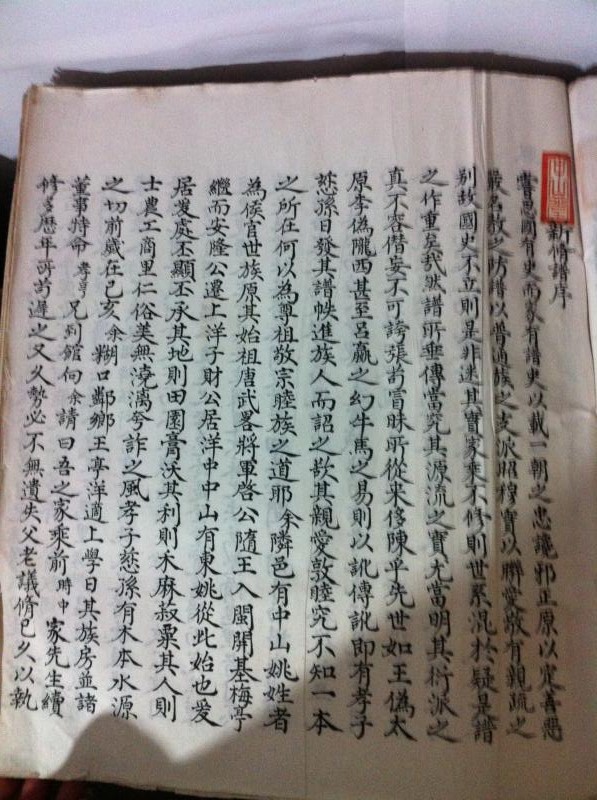 新脩譜序
嘗思國有史而家有譜史以載一朝之忠讒邪正原以定善惡
嚴名教之防譜以普通族之支派昭穆實以聯愛敬有親疏之
別故國史不立則是非迷其實家乘不修則世系混於疑是譜
之作重矣哉然譜所垂傳當究其源流之實尤當明其衍派之
真不容僭妄不可誇張若冒昧所從來侈陳乎先世如王偽太
原李偽隴西甚至呂嬴之幻牛馬之易則以訛傳訛即有孝子
慈孫日發其譜帙進族人而詔之教其親愛敦睦究不知一本
之所在何以為尊祖敬宗睦族之道耶余隣邑有中山姚姓者
為侯官世族原其始祖唐武畧將軍啓公隨王入閩開基梅亭
繼而安隆公遷上洋子財公居洋中中山有東姚從此始也爰
居爰處丕顯丕承其地則田園膏沃其利則禾麻菽粟其人則
士農工商里仁俗美無澆漓兮詐之風孝子慈孫有木本水源
之切前歲在己亥余糊口鄰鄉王亭洋適上學日其族房並諸
董事特命孝亨兄到館向余請曰吾之家乘前時中家先生續
修多歷年所若遲之又久勢必不無遺失父老議脩已久以執